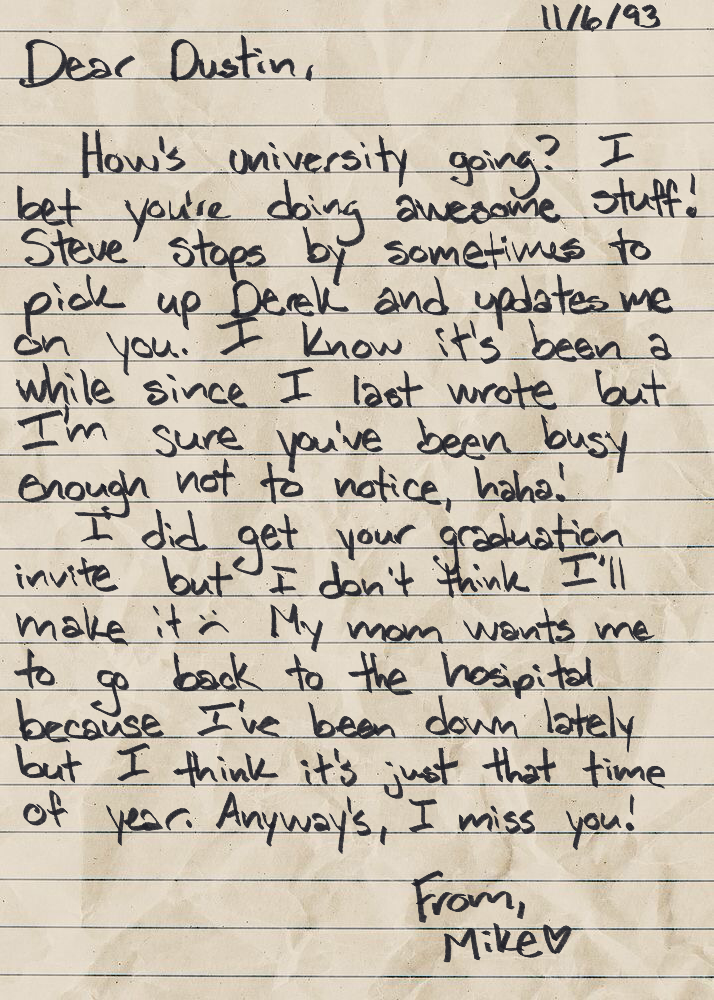 11/6/93
Dear Dustin,
How's university going? I
bet you're doing awesome stuff!
Steve stops by sometimes to
pick up Derek and updates me
on you. I know it's been a
while since I last wrote but
I'm sure you've been busy
enough not to notice, haha!
I did get your graduation
invite but I don't think I'll
make it :( My mom wants me
to go back to the hosipital
because I've been down lately
but I think it's just that time
of year. Anyway's, I miss you!
From,
Mike♡